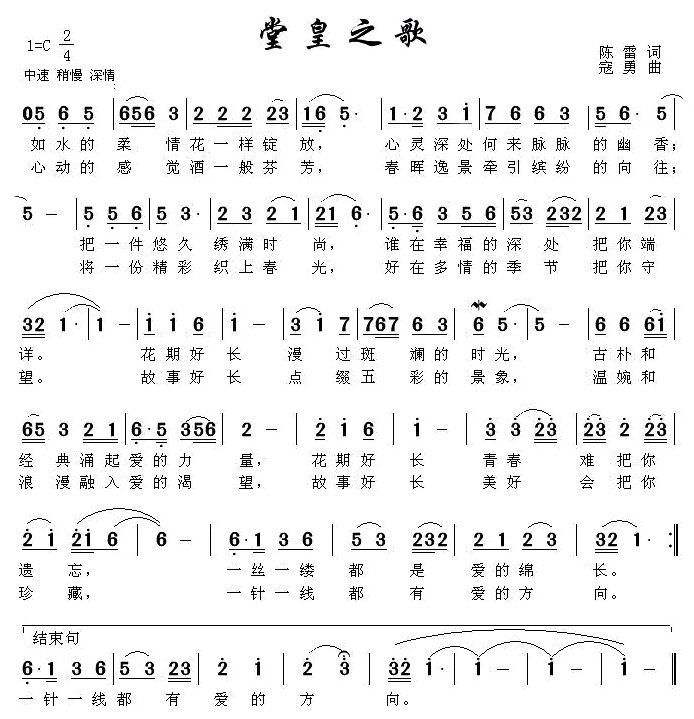 堂皇之歌
1=C 2/4
陈雷词
中速 稍慢 深情
寇勇曲
05 6 5 | (656 3 | 2 2 2 23 | 16 5· | 1·2 3 i | 7 6 6 6 | 5 6· | 5
如水的柔情花一样锭放，心灵深处何来脉脉的幽香；
心动的感觉酒一般芬芳，春晖逸景牵引缤纷的向往；
5 - | 5 5 6 | 5 3· | 2 3 2 1 | 21 6· | 5·6 3 5 6 | 53 232 | 2 1 23
把一件悠久绣满时尚，谁在幸福的深处把你端
将一份精彩织上春光，好在多情的季节把你守
32 1· | 1 - | i i 6 | 2 - | 3 i 7 | 767 6 3 | 6 5· | 5 - | 6 6 6i
详。花期好长漫过斑斓的时光，古朴和
望。故事好长点缀五彩的景象，温婉和
65 3 2 1 | 6·5 356 | 2 - | 2 i 6 | 2 - | 3 3 23 | 23 2 6
经典涌起爱的力量，花期好长青春难把你
浪漫融入爱的渴望，故事好长美好会把你
2 i | 2i 6 | 6 - | 6·1 3 6 | 5 3 232 | 2 1 2 3 | 32 1· :||
遗忘，一丝一缕都是爱的绵长。
珍藏，一针一线都有爱的方向。
结束句
6·1 3 6 | 5 3 23 | 2 i | 2 3 | 32 i· | i - | i - | i - ||
一针一线都有爱的方向。